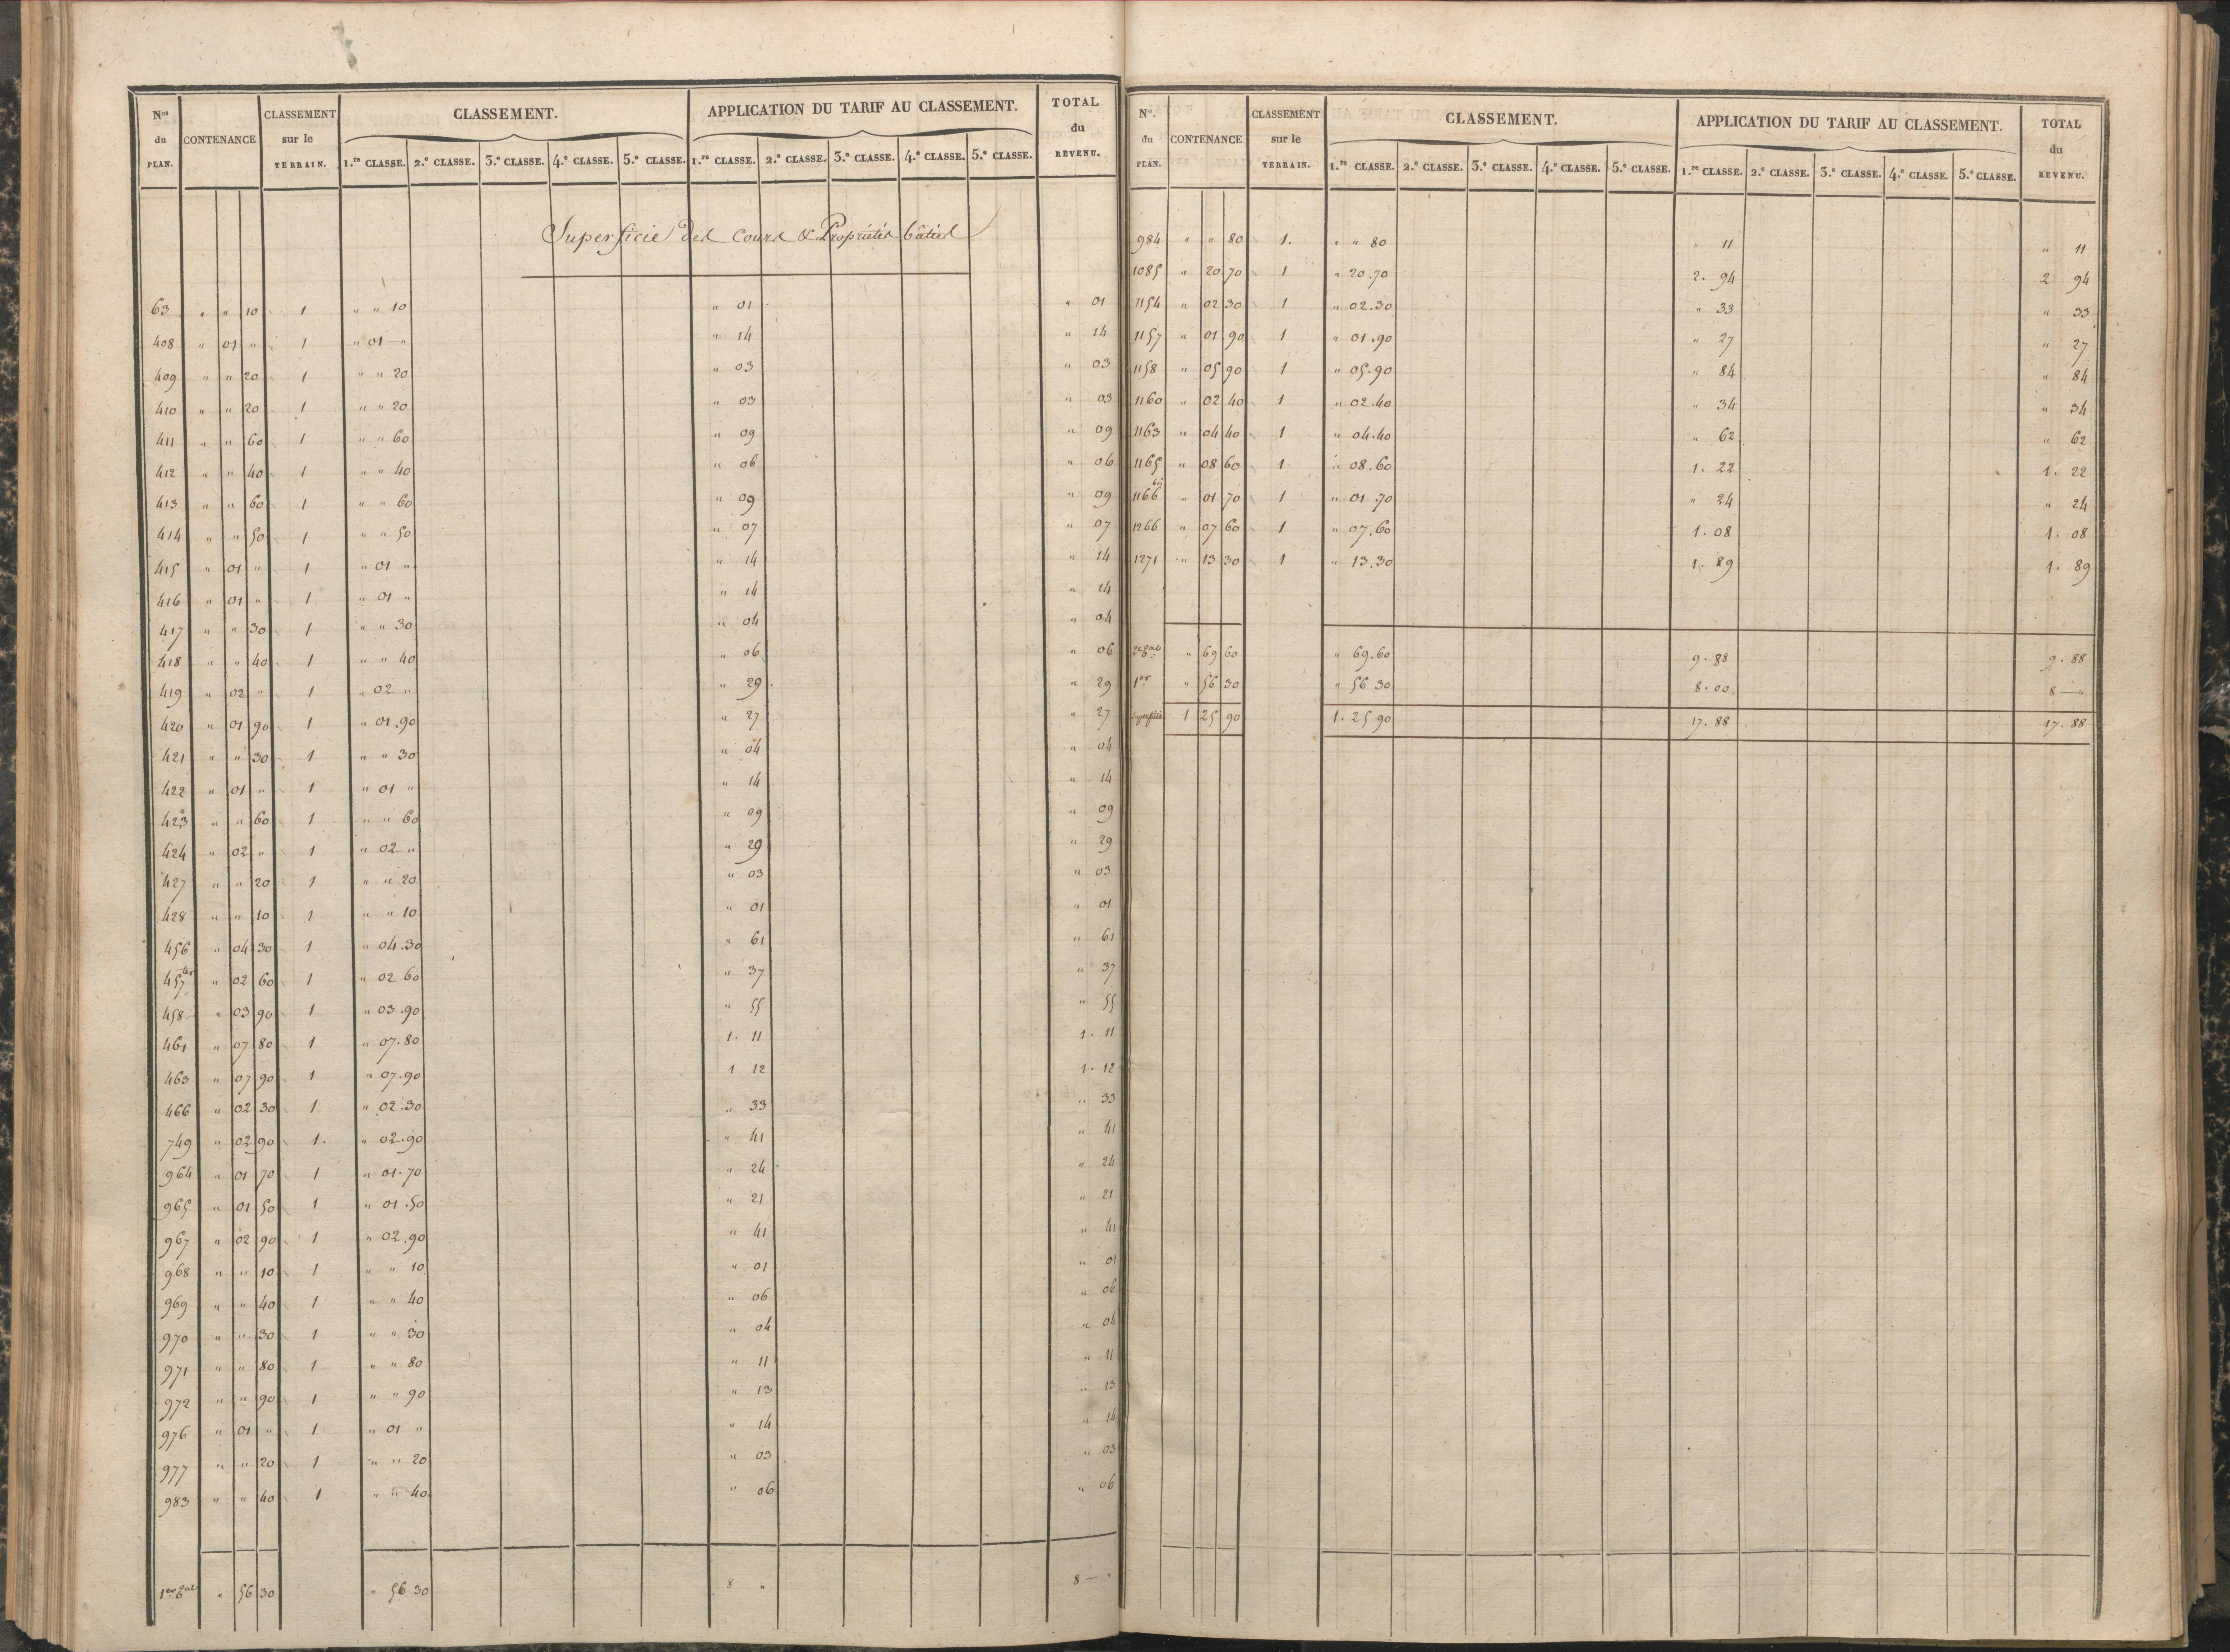 Nos du PLAN. CONTENANCE CLASSEMENT sur le TERRAIN. CLASSEMENT. APPLICATION DU TARIF AU CLASSEMENT. TOTAL du REVENU.
1.re CLASSE. 2.e CLASSE. 3.e CLASSE. 4.e CLASSE. 5.e CLASSE. 1.re CLASSE. 2.e CLASSE. 3.e CLASSE. 4.e CLASSE. 5.e CLASSE.
Superficie des Cours & Propriétés bâties
63 " " 10 1 " " 10 " 01 " 01
408 " 01 " 1 " 01 — " " 14 " 14
409 " " 20 1 " " 20 " 03 " 03
410 " " 20 1 " " 20 " 03 " 03
411 " " 60 1 " " 60 " 09 " 09
412 " " 40 1 " " 40 " 06 " 06
413 " " 60 1 " " 60 " 09 " 09
414 " " 50 1 " " 50 " 07 " 07
415 " 01 " 1 " 01 " " 14 " 14
416 " 01 " 1 " 01 " " 14 " 14
417 " " 30 1 " " 30 " 04 " 04
418 " " 40 1 " " 40 " 06 " 06
419 " 02 " 1 " 02 " " 29 " 29
420 " 01 90 1 " 01.90 " 27 " 27
421 " " 30 1 " " 30 " 04 " 04
422 " 01 " 1 " 01 " " 14 " 14
423 " " 60 1 " " 60 " 09 " 09
424 " 02 " 1 " 02 " " 29 " 29
427 " " 20 1 " " 20 " 03 " 03
428 " " 10 1 " " 10 " 01 " 01
456 " 04 30 1 " 04.30 " 61 " 61
457 ter " 02 60 1 " 02 60 " 37 " 37
458 " 03 90 1 " 03.90 " 55 " 55
461 " 07 80 1 " 07.80 1. 11 1. 11
463 " 07 90 1 " 07.90 1 12 1. 12
466 " 02 30 1 " 02.30 " 33 " 33
749 " 02 90 1. " 02.90 " 41 " 41
964 " 01 70 1 " 01.70 " 24 " 24
965 " 01 50 1 " 01.50 " 21 " 21
967 " 02 90 1 " 02.90 " 41 " 41
968 " " 10 1 " " 10 " 01 " 01
969 " " 40 1 " " 40 " 06 " 06
970 " " 30 1 " " 30 " 04 " 04
971 " " 80 1 " " 80 " 11 " 11
972 " " 90 1 " " 90 " 13 " 13
976 " 01 " 1 " 01 " " 14 " 14
977 " " 20 1 " " 20 " 03 " 03
983 " " 40 1 " " 40 " 06 " 06
" 56 30 " 56 30 8 " 8 — "
No. du PLAN. CONTENANCE CLASSEMENT sur le TERRAIN. CLASSEMENT. APPLICATION DU TARIF AU CLASSEMENT. TOTAL du REVENU.
1.re CLASSE. 2.e CLASSE. 3.e CLASSE. 4.e CLASSE. 5.e CLASSE. 1.re CLASSE. 2.e CLASSE. 3.e CLASSE. 4.e CLASSE. 5.e CLASSE.
984 " " 80 1. " " 80 " 11 " 11
1085 " 20 70 1 " 20.70 2. 94 2 94
1154 " 02 30 1 " 02.30 " 33 " 33
1157 " 01 90 1 " 01.90 " 27 " 27
1158 " 05 90 1 " 05.90 " 84 " 84
1160 " 02 40 1 " 02.40 " 34 " 34
1163 " 04 40 1 " 04.40 " 62 " 62
1165 " 08 60 1 " 08.60 1. 22 1. 22
1166 bis " 01 70 1 " 01.70 " 24 " 24
1266 " 07 60 1 " 07.60 1. 08 1. 08
1271 " 13 30 1 " 13.30 1. 89 1. 89
" 69 60 " 69.60 9. 88 9. 88
1er " 56 30 " 56 30 8. 00 8 — "
1 25 90 1. 25 90 17. 88 17. 88